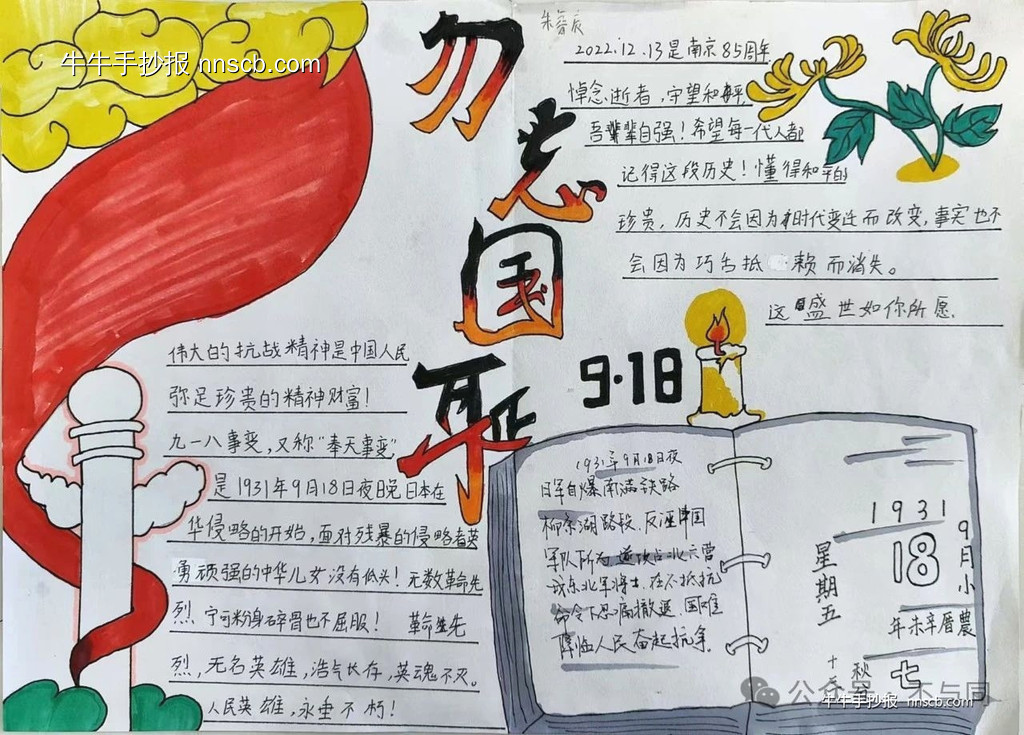 牛牛手抄报 nnscb.com
勿忘国耻
2022.12.13是南京85周年
悼念逝者,守望和平,
吾辈自强!希望每一代人都
记得这段历史!懂得和平的
珍贵,历史不会因为时代变迁而改变,事实也不
会因为巧舌抵赖而消失。
这盛世如你所愿.
9·18
伟大的抗战精神是中国人民
弥足珍贵的精神财富!
九一八事变,又称"奉天事变"
是1931年9月18日夜晚日本在
华侵略的开始,面对残暴的侵略者英
勇顽强的中华儿女没有低头!无数革命先
烈,宁可粉身碎骨也不屈服! 革命先
烈,无名英雄,浩气长存,英魂不灭。
人民英雄,永垂不朽!
1931年9月18日夜
日军自爆南满铁路
柳条湖路段,反诬中国
军队所为 遂攻占北大营
我东北军将士,在不抵抗
命令下忍痛撤退,国难
降临人民奋起抗争.
1931
18
9月小
星期五
年未辛曆農
七
秋分
公众号
不与同
牛牛手抄报 nnscb.com